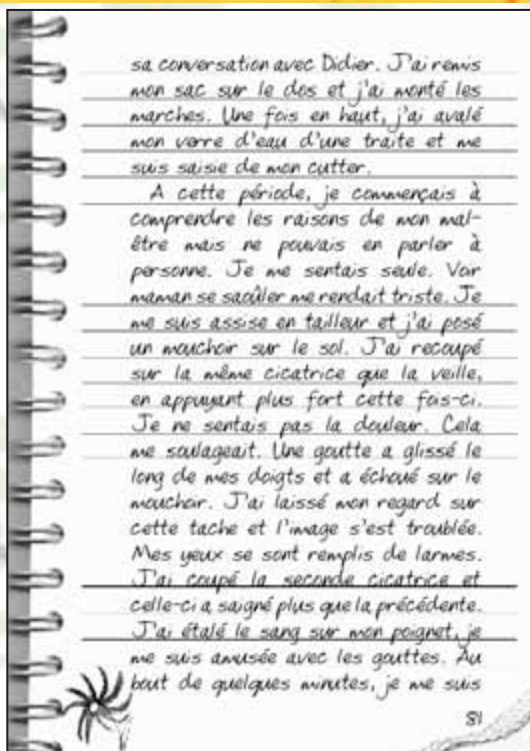 sa conversation avec Didier. J'ai remis
mon sac sur le dos et j'ai monté les
marches. Une fois en haut, j'ai avalé
mon verre d'eau d'une traite et me
suis saisie de mon cutter.
A cette période, je commençais à
comprendre les raisons de mon mal-
être mais ne pouvais en parler à
personne. Je me sentais seule. Voir
maman se saoûler me rendait triste. Je
me suis assise en tailleur et j'ai posé
un mouchoir sur le sol. J'ai recoupé
sur la même cicatrice que la veille,
en appuyant plus fort cette fois-ci.
Je ne sentais pas la douleur. Cela
me soulageait. Une goutte a glissé le
long de mes doigts et a échoué sur le
mouchoir. J'ai laissé mon regard sur
cette tache et l'image s'est troublée.
Mes yeux se sont remplis de larmes.
J'ai coupé la seconde cicatrice et
celle-ci a saigné plus que la précédente.
J'ai étalé le sang sur mon poignet, je
me suis amusée avec les gouttes. Au
bout de quelques minutes, je me suis
81